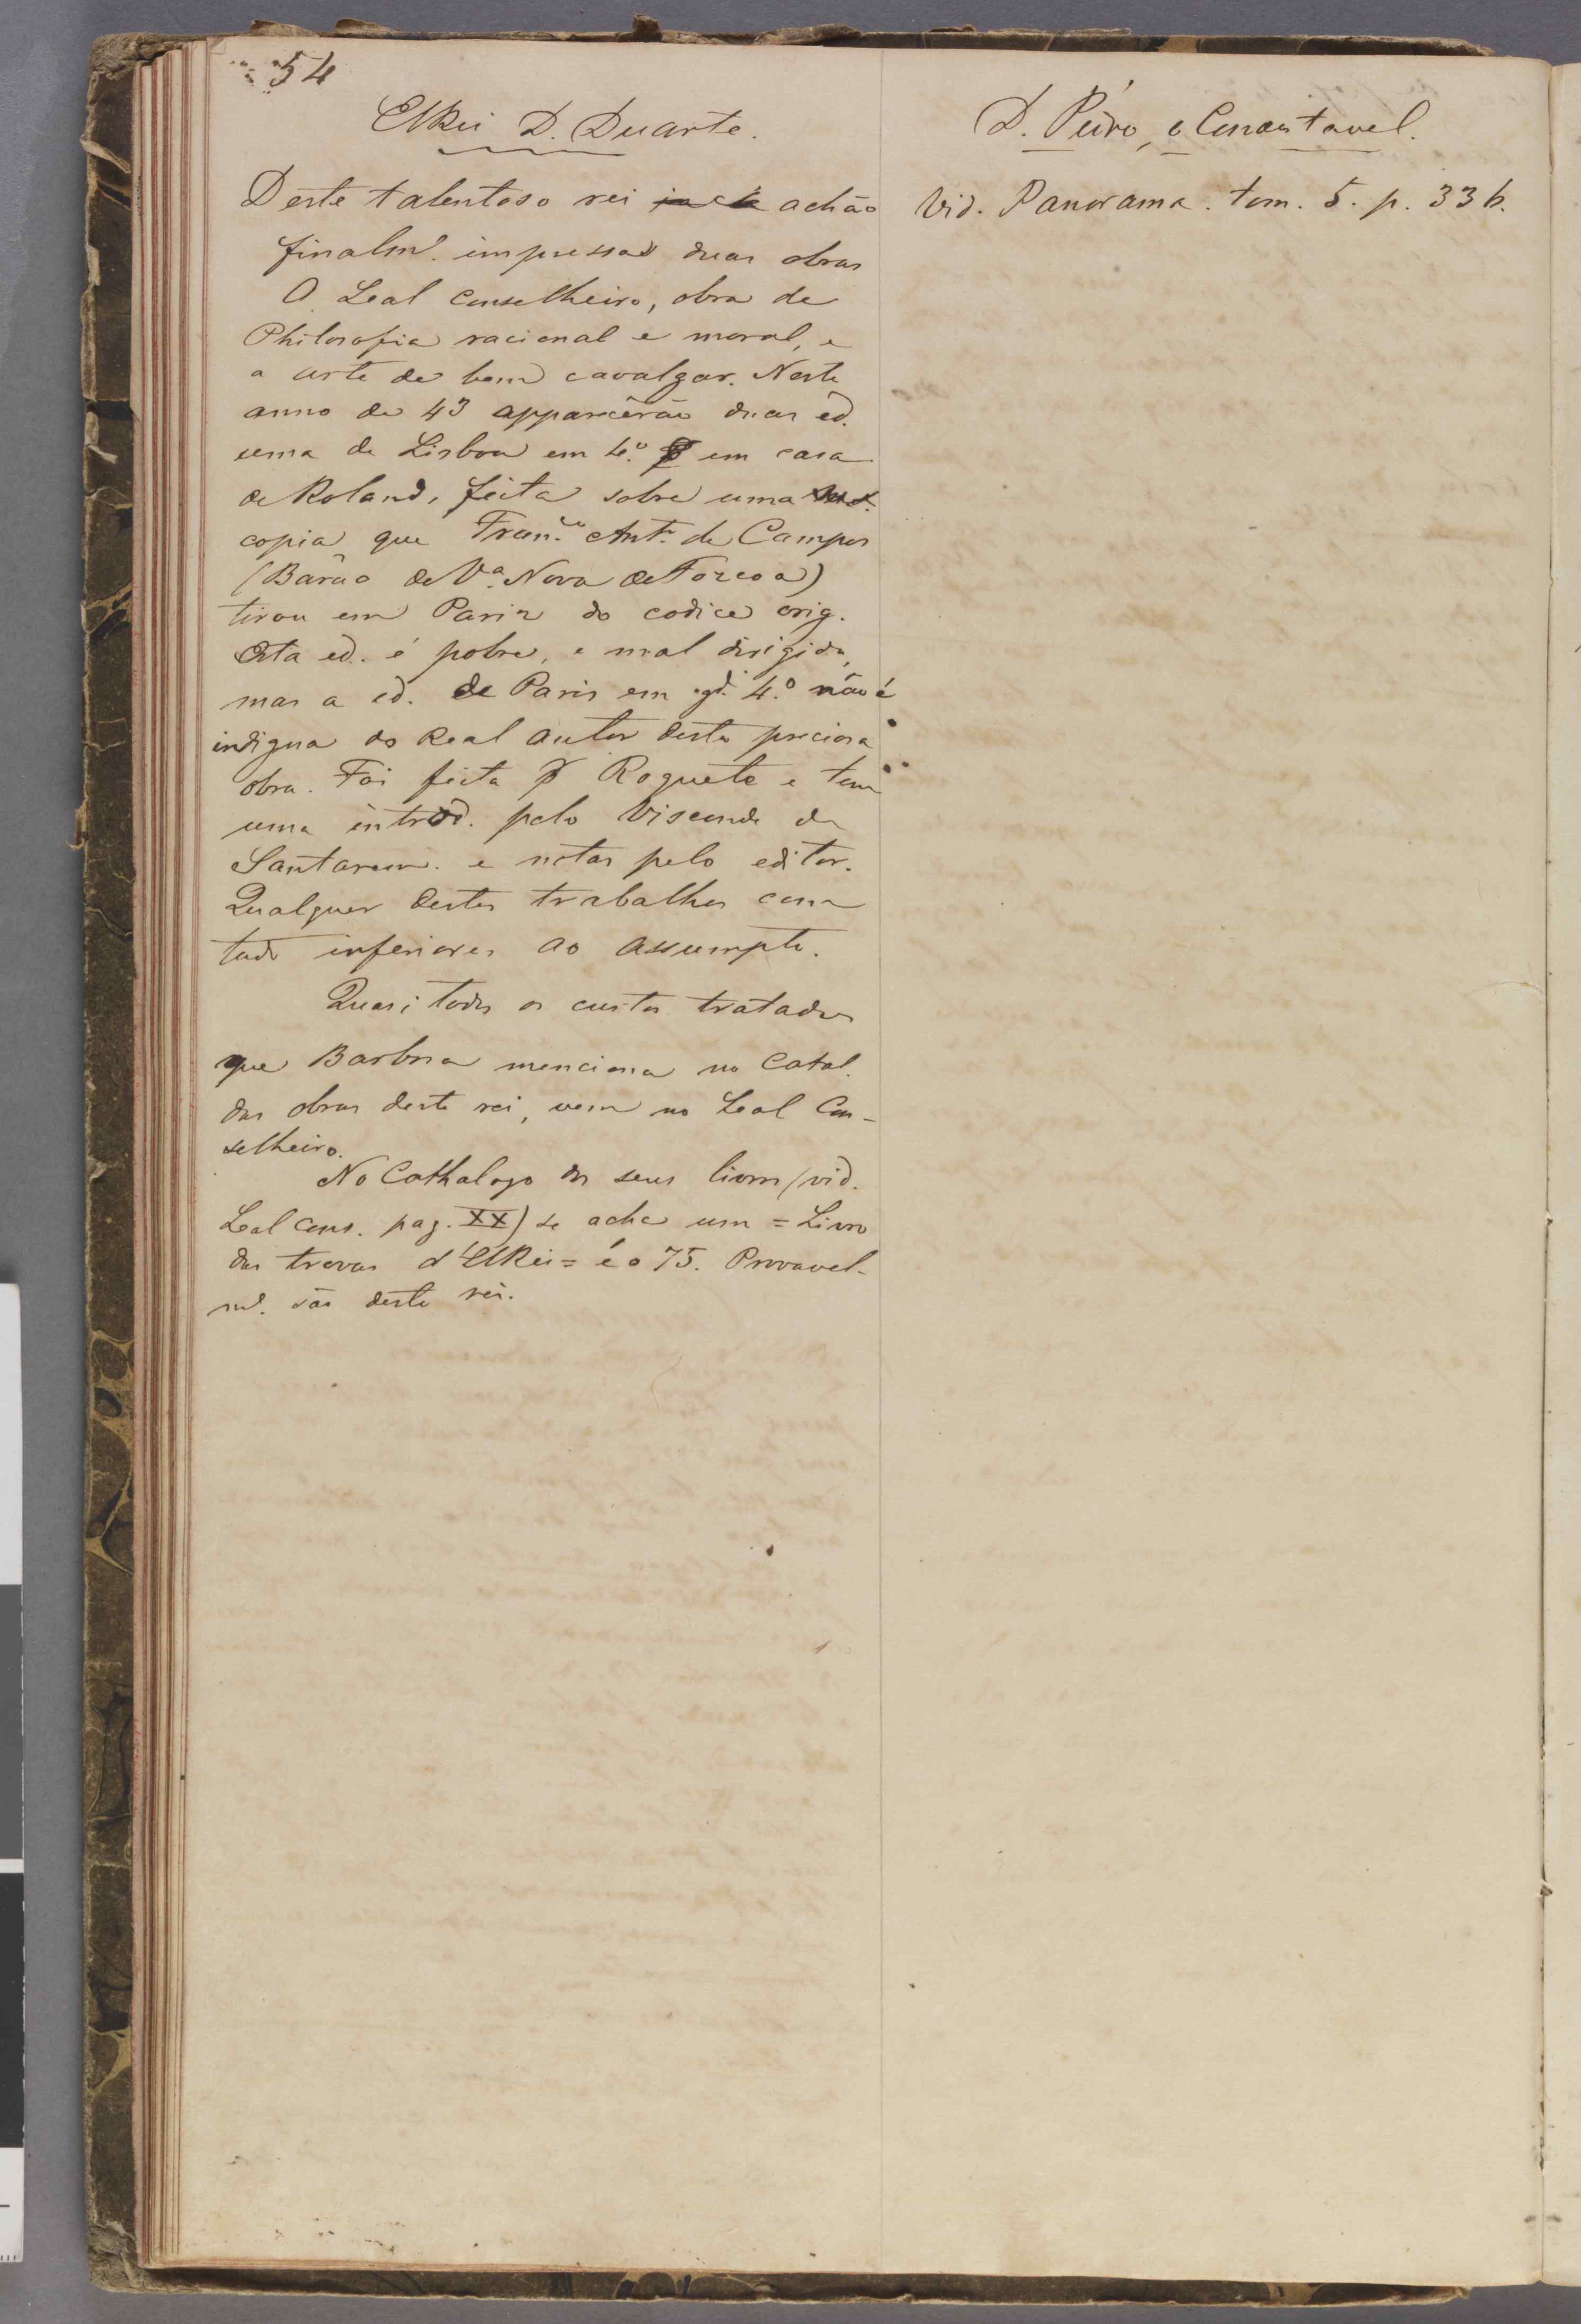 54
ElRei D. Duarte.
Deste talentoso rei achão
finalmᵉ. impressas duas obras
O Leal Conselheiro, obra de
Philosofia racional e moral, e
a arte de bem cavalgar. Neste
anno de 43 apparecêrão duas ed.
uma de Lisboa em 4.º em casa
de Roland, feita sobre uma
copia que Fran.co Ant.º de Campos
(Barão de V.ª Nova de Fozcoa)
tirou em Pariz do codice orig.
Esta ed. é pobre, e mal dirigida,
mas a ed. de Paris em gd. 4.º não é
indigna do Real autor desta preciosa
obra. Foi feita pr Roquete e tem
uma introd. pelo Visconde de
Santarem. e notas pelo editor.
Qualquer destes trabalhos com
tudo inferiores ao assumpto.
Quasi todos os curtos tratados
que Barbosa menciona no Catal.
das obras deste rei, vem no Leal Con-
selheiro.
No Cathalogo dos seus livros (vid.
Leal Cons. pag. XX) se acha um = Livro
das trovas d'ElRei = é o 75. Provavel-
mᵉ. são deste rei.
D. Pedro, o Condestavel.
Vid. Panorama. tom. 5. p. 336.